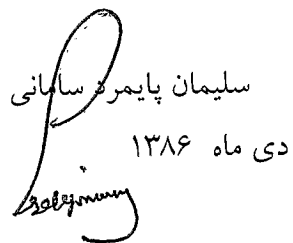 سلیمان پایمرد سامانی
دی ماه ۱۳۸۶